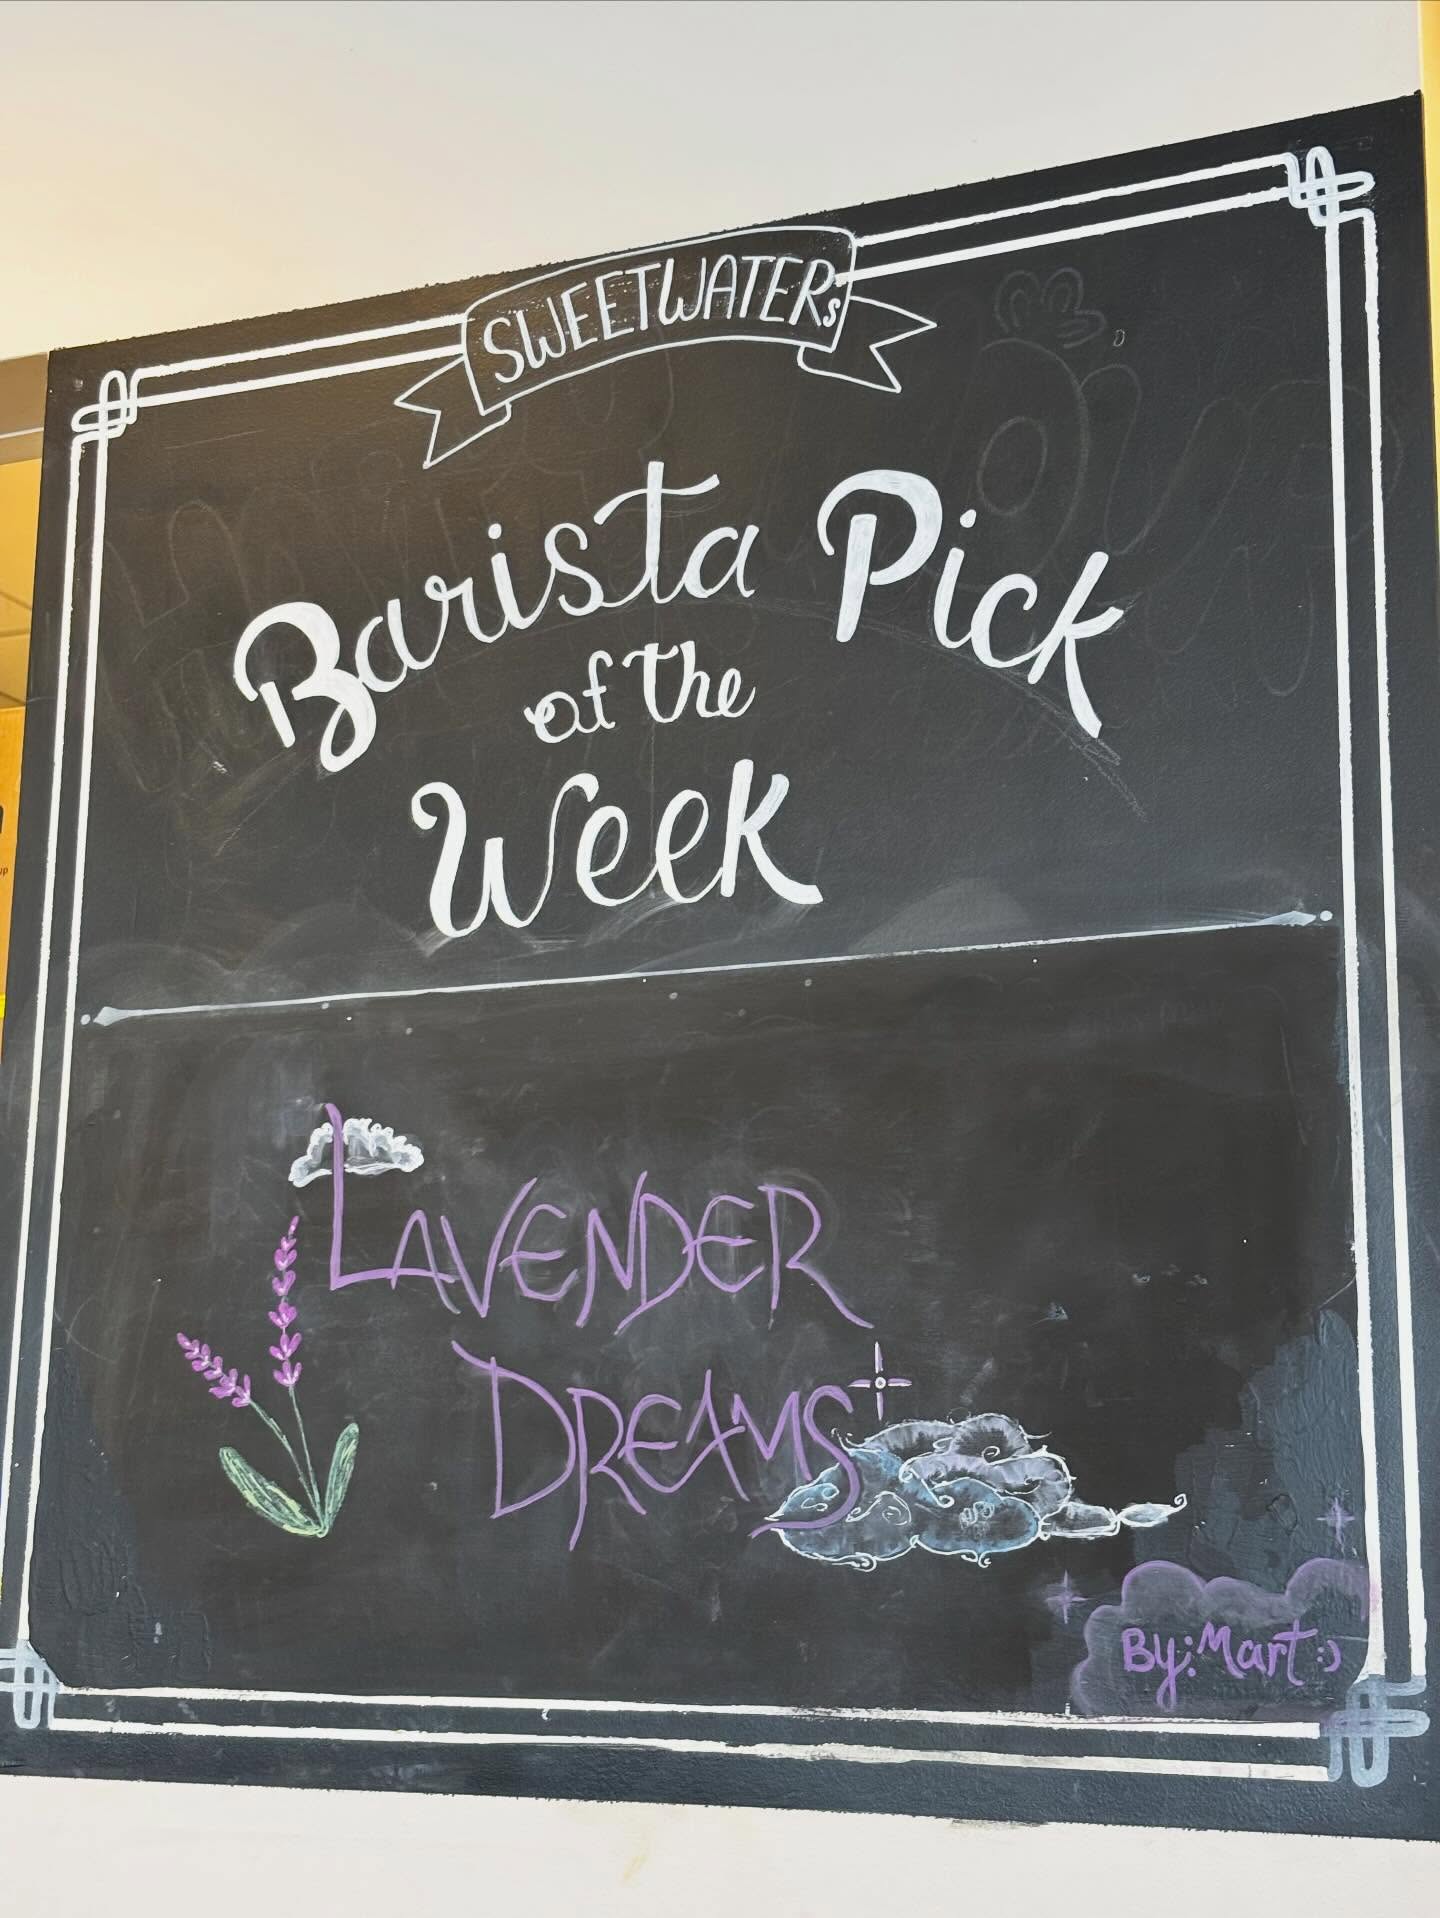 SWEETWATERs
Barista Pick
of the
Week
LAVENDER
DREAMS
By: Mart :)